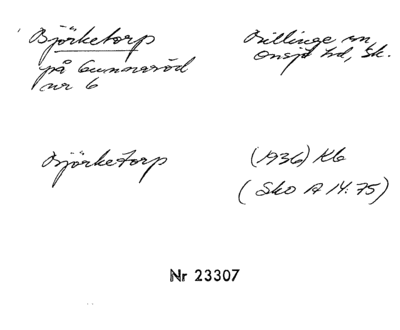 Björketorp
på Gunnaröd
nr 6
Billinge sn
Onsjö hd, Sk.
Björketorp
(1936) Kb
(Sko A 14:75)
Nr 23307